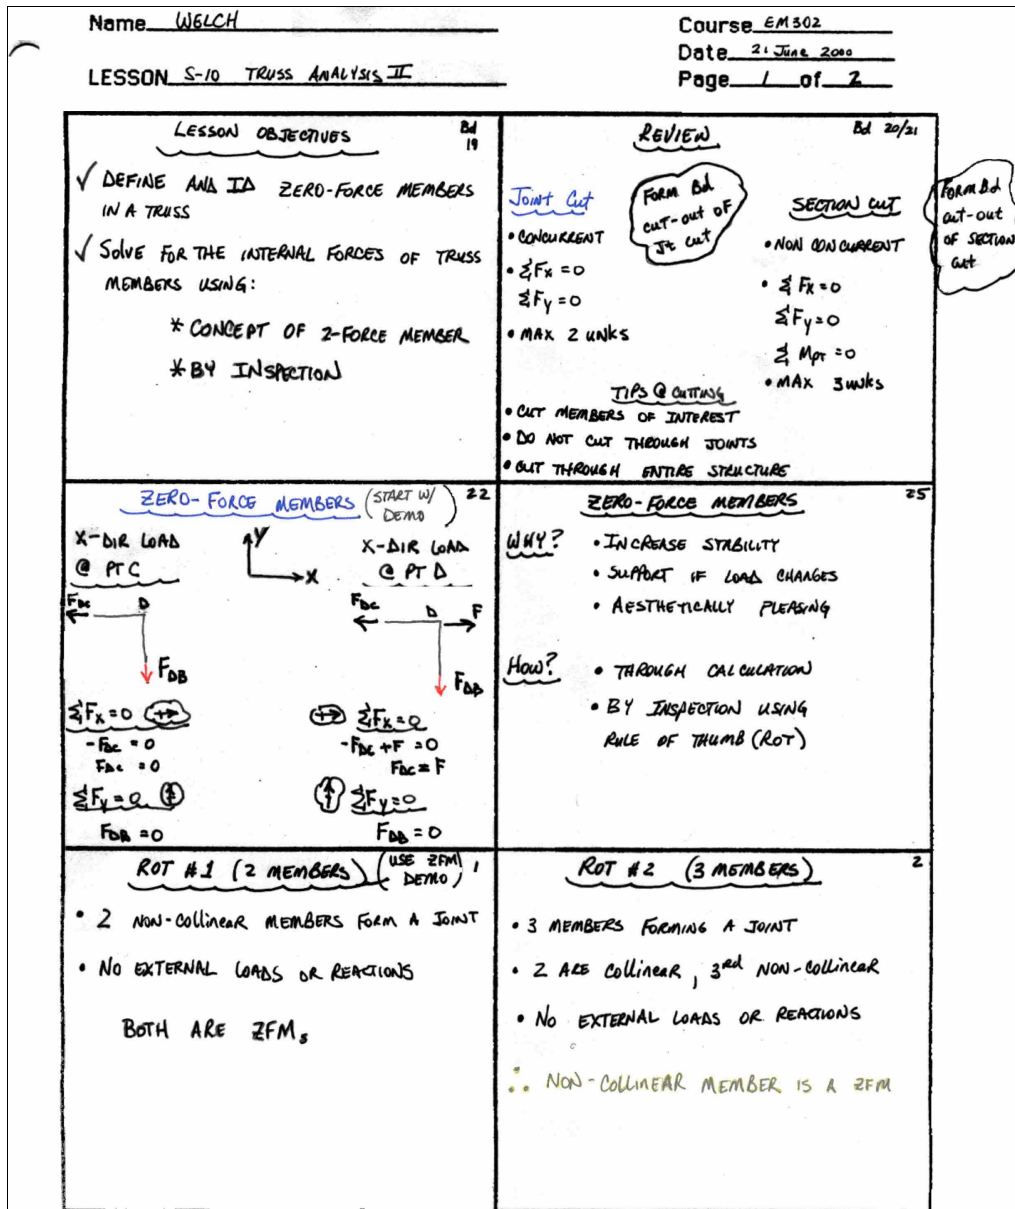 Name WELCH
Course EM302
Date 21 June 2000
LESSON S-10 TRUSS ANALYSIS II
Page 1 of 2
LESSON OBJECTIVES
Bd 19
✓ DEFINE AND ID ZERO-FORCE MEMBERS
IN A TRUSS
✓ SOLVE FOR THE INTERNAL FORCES OF TRUSS
MEMBERS USING:
* CONCEPT OF 2-FORCE MEMBER
* BY INSPECTION
REVIEW
Bd 20/21
JOINT CUT
FORM Bd
CUT-OUT OF
Jt CUT
• CONCURRENT
• ΣFx = 0
ΣFy = 0
• MAX 2 UNKS
SECTION CUT
FORM Bd
cut-out
OF SECTION
cut
• NON CONCURRENT
• ΣFx = 0
ΣFy = 0
ΣMPT = 0
• MAX 3 UNKS
TIPS @ CUTTING
• CUT MEMBERS OF INTEREST
• DO NOT CUT THROUGH JOINTS
• CUT THROUGH ENTIRE STRUCTURE
ZERO-FORCE MEMBERS (START W/
DEMO)
22
X-DIR LOAD
@ PT C
Y
X
FDC
D
FDB
ΣFx = 0
-FDC = 0
FDC = 0
ΣFy = 0
FDB = 0
X-DIR LOAD
@ PT D
FDC
D
F
FDB
ΣFx = 0
-FDC + F = 0
FDC = F
ΣFy = 0
FDB = 0
ZERO-FORCE MEMBERS
25
WHY?
• INCREASE STABILITY
• SUPPORT IF LOAD CHANGES
• AESTHETICALLY PLEASING
HOW?
• THROUGH CALCULATION
• BY INSPECTION USING
RULE OF THUMB (ROT)
ROT #1 (2 MEMBERS) (USE ZFM
DEMO)
1
• 2 NON-COLLINEAR MEMBERS FORM A JOINT
• NO EXTERNAL LOADS OR REACTIONS
BOTH ARE ZFMs
ROT #2 (3 MEMBERS)
2
• 3 MEMBERS FORMING A JOINT
• 2 ARE COLLINEAR, 3rd NON-COLLINEAR
• NO EXTERNAL LOADS OR REACTIONS
∴ NON-COLLINEAR MEMBER IS A ZFM